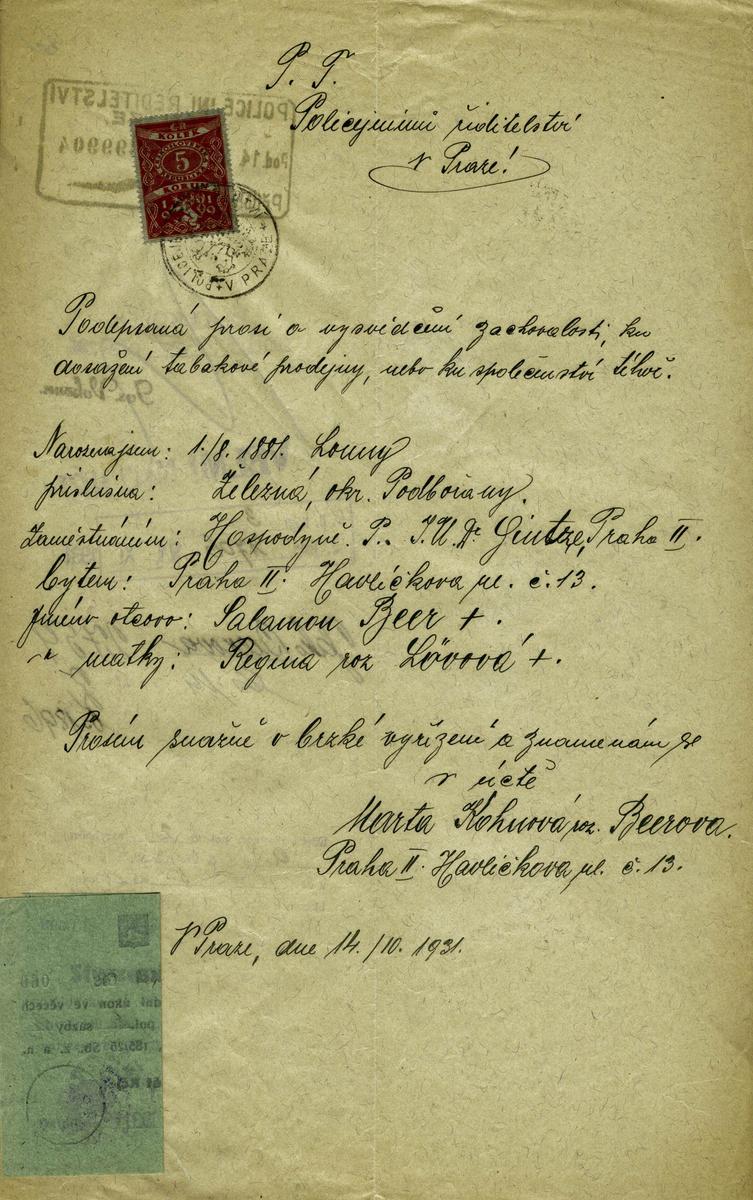 P. T.
Policejnímu ředitelství
v Praze!
KOLEK
5
KORUN
V PRAZE
Podepsaná prosí o vysvědčení zachovalosti, ku
dosažení tabakové prodejny, nebo ku společenství téhož.
Narozena jsem: 1./8. 1881. Louny
příslušna: Železná, okr. Podbořany.
Zaměstnáním: Hospodyně. P. J.U.Dr Gintze, Praha II.
bytem: Praha II. Havlíčkova ul. č. 13.
Jméno otcovo: Salamon Beer +.
" matky: Regina roz Lövová +.
Prosím snažně o brzké vyřízení a znamenám se
v úctě
Marta Kohnová roz. Beerova.
Praha II. Havlíčkova ul. č. 13.
V Praze, dne 14./10. 1931.